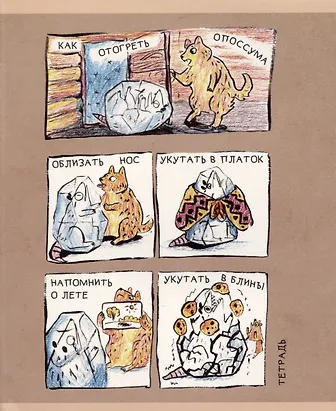 КАК ОТОГРЕТЬ ОПОССУМА
ОБЛИЗАТЬ НОС
УКУТАТЬ В ПЛАТОК
НАПОМНИТЬ
О ЛЕТЕ
УКУТАТЬ В БЛИНЫ
ТЕТРАДЬ